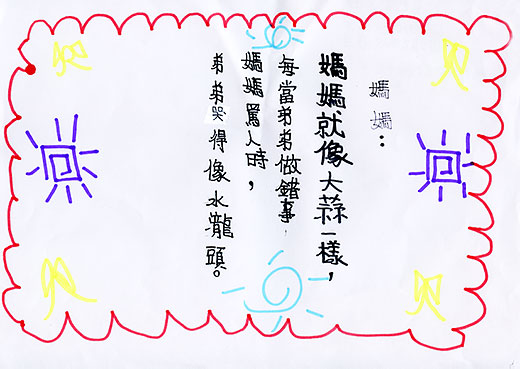 媽媽：
媽媽就像大蒜一樣，
每當弟弟做錯事，
媽媽罵人時，
弟弟哭得像水龍頭。